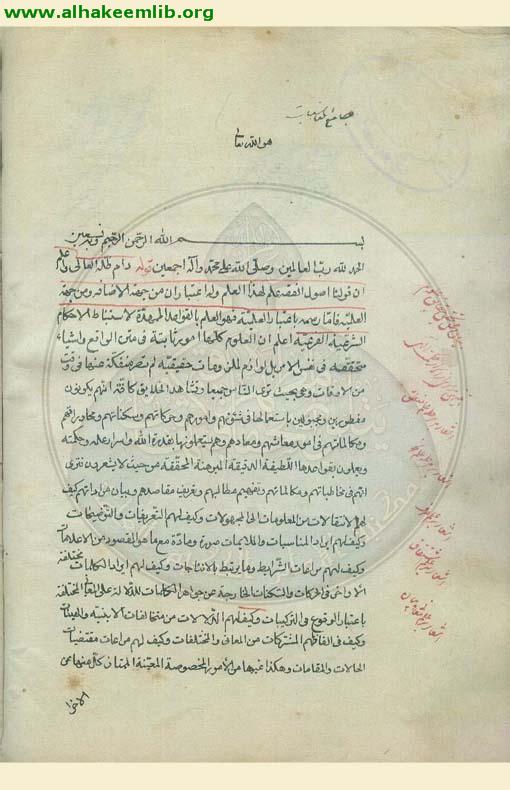 www.alhakeemlib.org
هو الله تعالى
بسم الله الرحمن الرحيم وبه نستعين
الحمد لله رب العالمين وصلى الله على محمد وآله اجمعين قوله دام ظله العالى واعلم
ان قولنا اصول الفقه علم لهذا العلم وله اعتباران من جهة الاضافة ومن جهة
العلمية فاما رسمه باعتبار العلمية فهو العلم بالقواعد الممهدة لاستنباط الاحكام
الشرعية الفرعية اعلم ان العلوم كلها امور ثابتة فى متن الواقع واشياء
متحققه فى نفس الامر بل لوازم للماهيات حقيقتيه لم تصر منفكة عنها فى وقت
من الاوقات وهى بحيث ترى الناس جميعا وقتا هذا الخلايق كافة انهم يكونون
مفطورين ومجبولين باستعمالها فى شئونهم وامورهم وحركاتهم وسكناتهم ومحاوراتهم
ومكالماتهم فى امور معاشهم ومعادهم وهم يستعملونها بقدرة الله واسرار علمه وحكمته
ويعملون بقواعدها اللطيفة الدقيقة المبرهنة المحققة من حيث لا يشعرون فترى
انهم فى مخاطباتهم ومكالماتهم وتفهيم مطالبهم وتعريف مقاصدهم وبيان مراداتهم كيف
لهم الانتقالات من المعلومات الى المجهولات وكيف لهم التعريفات والتوضيحات
وكيف لهم ايراد المناسبات والملايمات صورة ومادة مع ما هو المقصود من الاعلامات
وكيف لهم مراعات الشرايط وما يرتبط بالانتاجات وكيف لهم ايراد الكلمات مختلفة
الاواخر فى الحركات والسكنات الخارجة عن جواهر الكلمات للدلالة على المعانى المختلفة
باعتبار الوقوع فى التركيبات وكيف لهم الدلالات من متخالفات الابنية والهيئات
وكيف فى الفاظهم المشتركات من المعانى والمختلفات وكيف لهم مراعات مقتضيات
الحالات والمقامات وهكذا غيرها من الامور المخصوصة المعينة الممتاز كل منها عن
الاخر